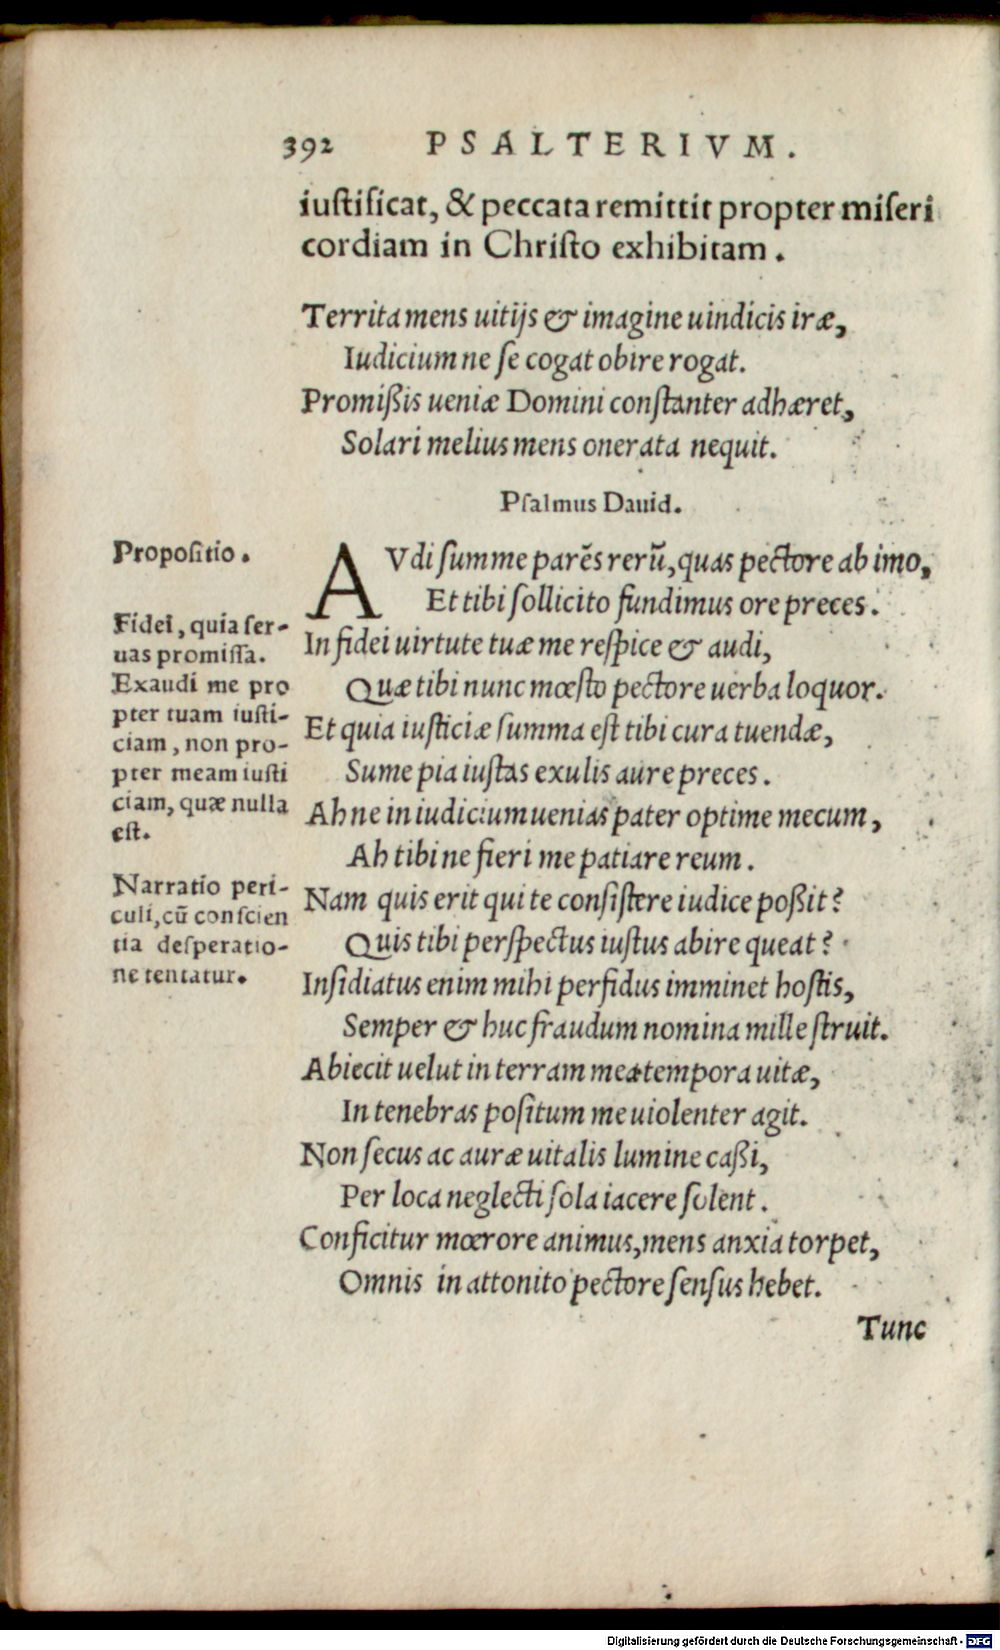 392 PSALTERIVM.
iustificat, & peccata remittit propter miseri
cordiam in Christo exhibitam.
Territa mens uitijs & imagine uindicis iræ,
Iudicium ne se cogat obire rogat.
Promißis ueniæ Domini constanter adhæret,
Solari melius mens onerata nequit.
Psalmus Dauid.
Propositio.
AVdi summe parẽs rerũ, quas pectore ab imo,
Et tibi sollicito fundimus ore preces.
Fidei, quia ser-
uas promissa.
Exaudi me pro
pter tuam iusti-
ciam, non pro-
pter meam iusti
ciam, quæ nulla
est.
In fidei uirtute tuæ me respice & audi,
Quæ tibi nunc mœsto pectore uerba loquor.
Et quia iusticiæ summa est tibi cura tuendæ,
Sume pia iustas exulis aure preces.
Ah ne in iudicium uenias pater optime mecum,
Ah tibi ne fieri me patiare reum.
Narratio peri-
culi, cũ conscien
tia desperatio-
ne tentatur.
Nam quis erit qui te consistere iudice poßit?
Quis tibi perspectus iustus abire queat?
Insidiatus enim mihi perfidus imminet hostis,
Semper & huc fraudum nomina mille struit.
Abiecit uelut in terram mea tempora uitæ,
In tenebras positum me uiolenter agit.
Non secus ac auræ uitalis lumine caßi,
Per loca neglecti sola iacere solent.
Conficitur mœrore animus, mens anxia torpet,
Omnis in attonito pectore sensus hebet.
Tunc
Digitalisierung gefördert durch die Deutsche Forschungsgemeinschaft - DFG